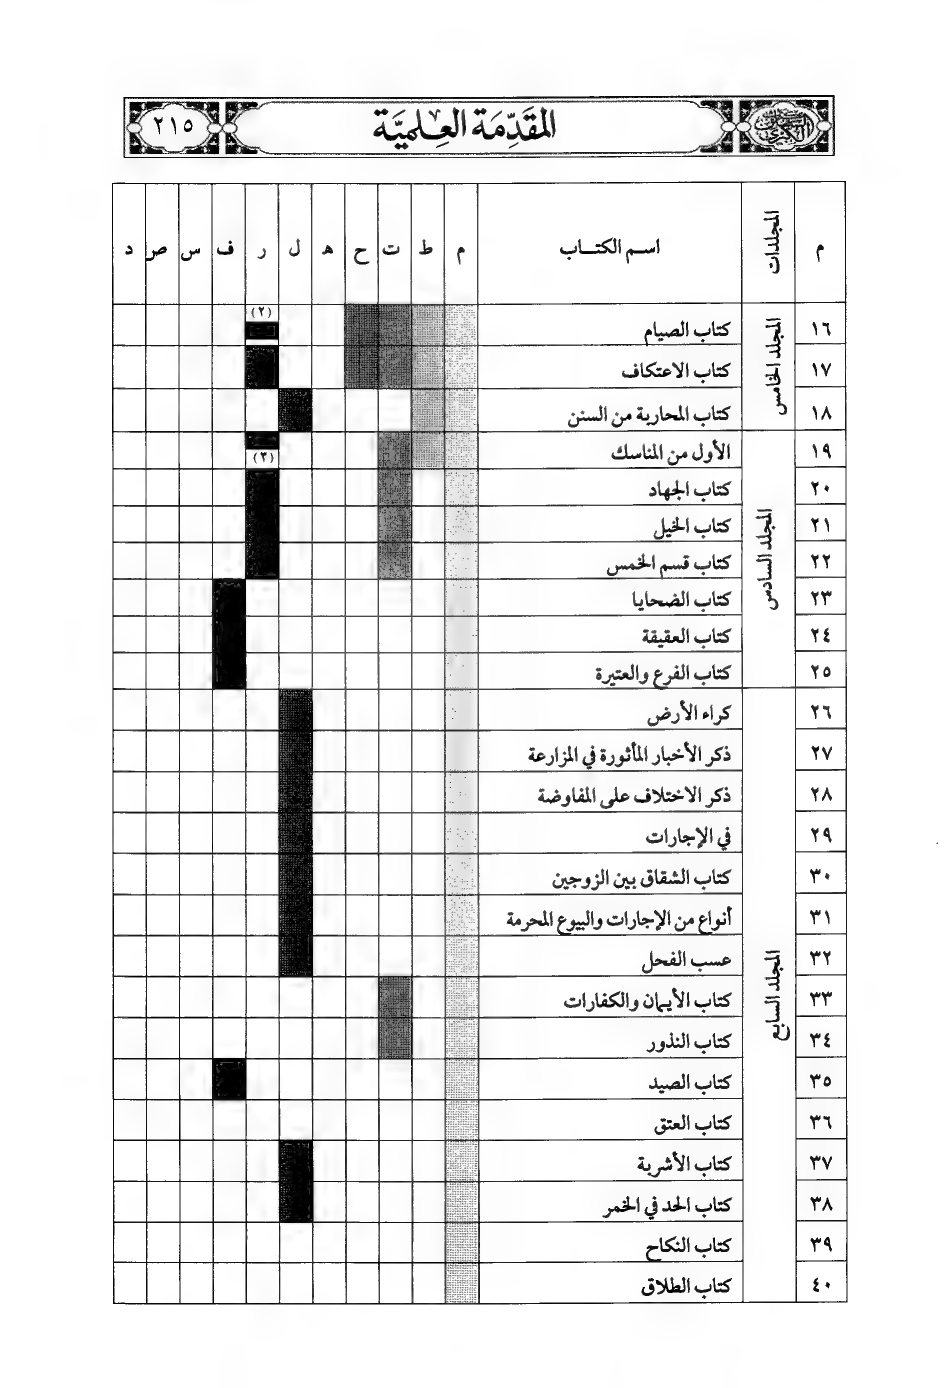 المقدمة العلمية
٢١٥
م المجلدات اسم الكتاب م ط ت ح ه ل ر ف س ص د
المجلد الخامس
١٦ كتاب الصيام (٢)
١٧ كتاب الاعتكاف
١٨ كتاب المحاربة من السنن
المجلد السادس
١٩ الأول من المناسك (٣)
٢٠ كتاب الجهاد
٢١ كتاب الخيل
٢٢ كتاب قسم الخمس
٢٣ كتاب الضحايا
٢٤ كتاب العقيقة
٢٥ كتاب الفرع والعتيرة
المجلد السابع
٢٦ كراء الأرض
٢٧ ذكر الأخبار المأثورة في المزارعة
٢٨ ذكر الاختلاف على المفاوضة
٢٩ في الإجارات
٣٠ كتاب الشقاق بين الزوجين
٣١ أنواع من الإجارات والبيوع المحرمة
٣٢ عسب الفحل
٣٣ كتاب الأيمان والكفارات
٣٤ كتاب النذور
٣٥ كتاب الصيد
٣٦ كتاب العتق
٣٧ كتاب الأشربة
٣٨ كتاب الحد في الخمر
٣٩ كتاب النكاح
٤٠ كتاب الطلاق